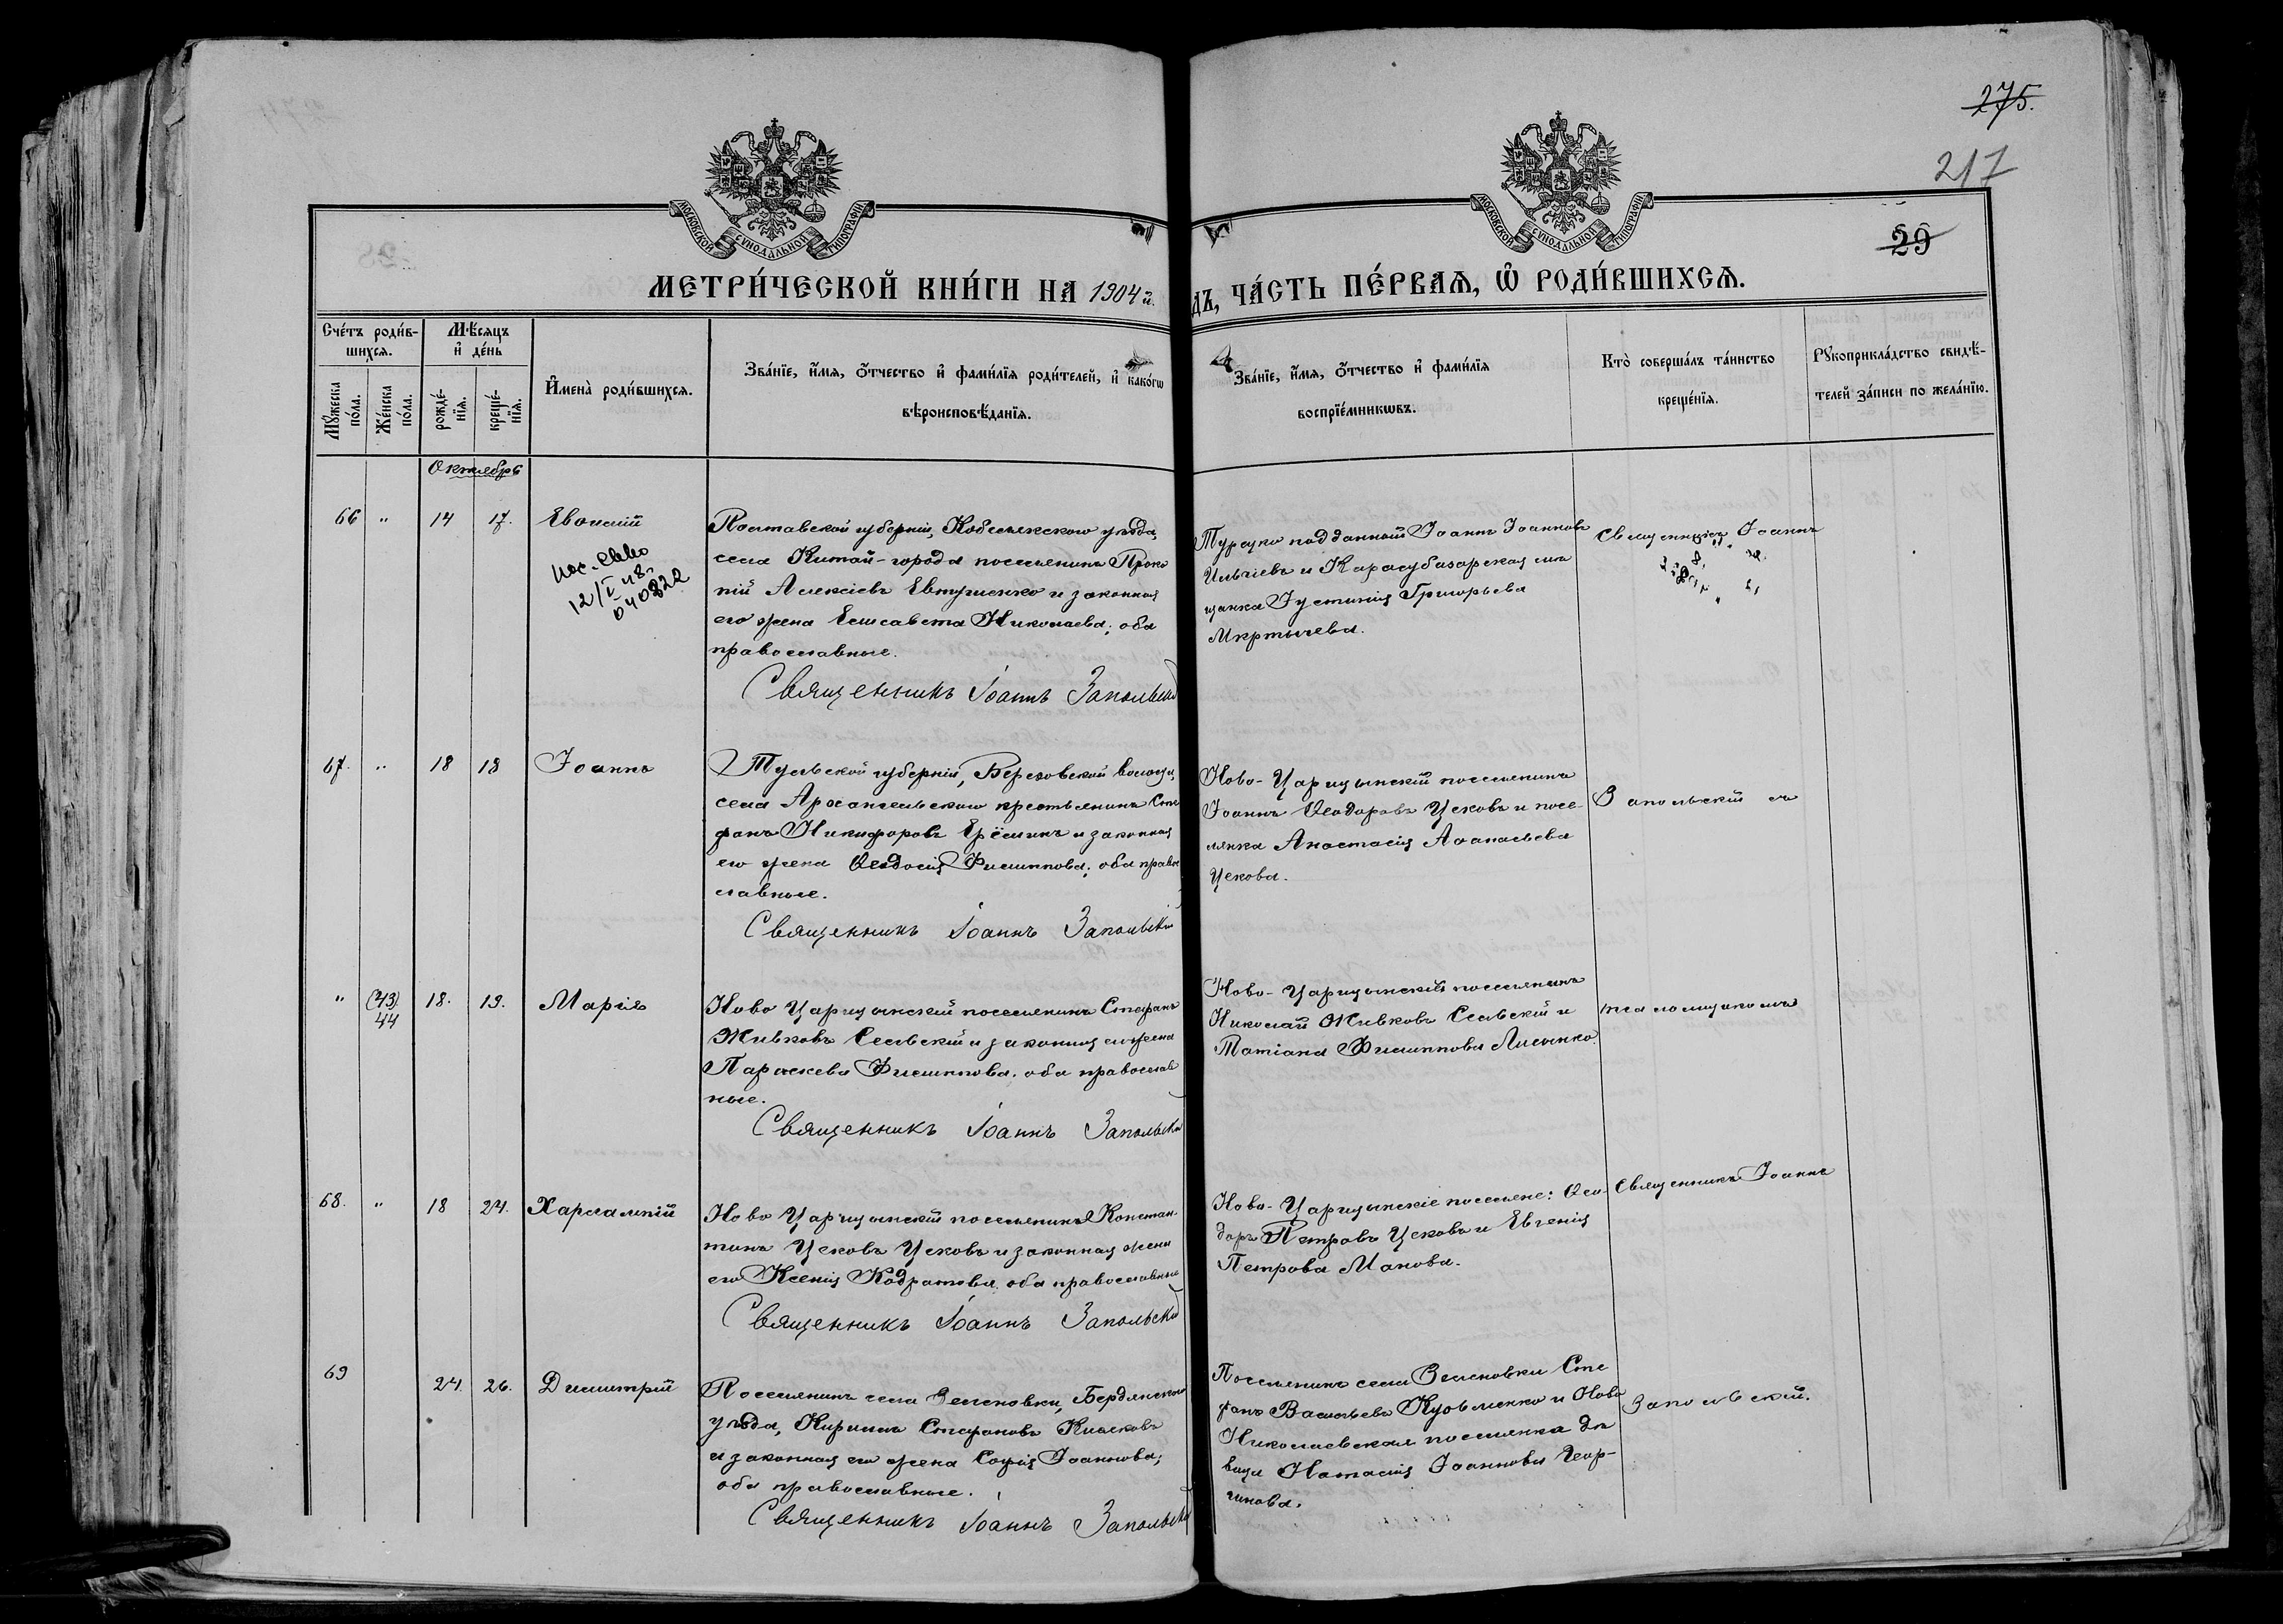 275.
217
29
МОСКОВСКОЙ СѴНОДАЛЬНОЙ ТИПОГРАФІИ
МОСКОВСКОЙ СѴНОДАЛЬНОЙ ТИПОГРАФІИ
МЕТРИ́ЧЕСКОЙ КНИ́ГИ НА 1904 й.
ДЪ, ЧА́СТЬ ПЕ́РВАѦ, Ѡ҆ РОДИ́ВШИХСѦ.
Сче́тъ роди́в-
шихсѧ.
Мꙋ́жеска
по́ла.
Же́нска
по́ла.
Мѣ́сѧцъ
и҆ де́нь
рожде́-
нїѧ.
креще́-
нїѧ.
И҆мена̀ роди́вшихсѧ.
Зва́нїе, и҆́мѧ, ѻ҆́тчество и҆ фами́лїѧ роди́телей, и҆ како́гѡ
вѣроисповѣ́данїѧ.
Зва́нїе, и҆́мѧ, ѻ҆́тчество и҆ фами́лїѧ
воспрїе́мникѡвъ.
Кто̀ соверша́лъ та́инство
креще́нїѧ.
Рꙋкоприкла́дство свидѣ́-
телей за́писи по жела́нїю.
Октябрь
66 " 14 17.
12/V 48г
040822
Полтавской губерніи, Кобелякскаго уѣзда,
села Китай-города поселянинъ Проко
пій Алексіевъ Евтушенко и законная
его жена Елисавета Николаева; оба
православные.
Священникъ Іоаннъ Запольскій
Турецко подданный Іоаннъ Іоанновъ
Ильчіевъ и Карасубазарская мѣ
щанка Іустинія Григорьева
Мкртычева.
Священникъ Іоаннъ
67. " 18 18 Іоаннъ
Тульской губерніи, Березовской волости,
села Архангельскаго крестьянинъ Сте
фанъ Никифоровъ Ерёминъ и законная
его жена Ѳеодосія Филиппова; оба право
славные.
Священникъ Іоаннъ Запольскій
Ново-Царицынскій поселянинъ
Іоаннъ Ѳеодоровъ Цековъ и посе-
лянка Анастасія Аѳанасьева
Цекова.
Запольскій съ
" (43) 44 18. 19. Марія
Ново Царицынскій поселянинъ Стефанъ
Живковъ Сельскій и законная его жена
Параскева Филиппова. оба православ
ные.
Священникъ Іоаннъ Запольскій
Ново-Царицынскій поселянинъ
Николай Живковъ Сельскій и
Татіана Филиппова Лисенко.
псаломщикомъ
68. " 18 24. Харлампій
Ново Царицынскій поселянинъ Констан-
тинъ Цековъ Цековъ и законная жена
его Ксенія Кодратова. оба православные
Священникъ Іоаннъ Запольскій
Ново-Царицынскіе поселяне: Ѳео-
доръ Петровъ Цековъ и Евгенія
Петрова Манова.
Священникъ Іоаннъ
69 24. 26. Димитрій
Поселянинъ села Зеленовки, Бердянскаго
уѣзда, Кириллъ Стефановъ Кысковъ
и законная его жена Софія Іоаннова;
оба православные.
Священникъ Іоаннъ Запольскій
Поселянинъ села Зеленовки Сте
фанъ Васильевъ Кузьменко и Ново
Николаевская поселянка дѣ
вица Наталія Іоаннова Геор-
гинова.
Запольскій.